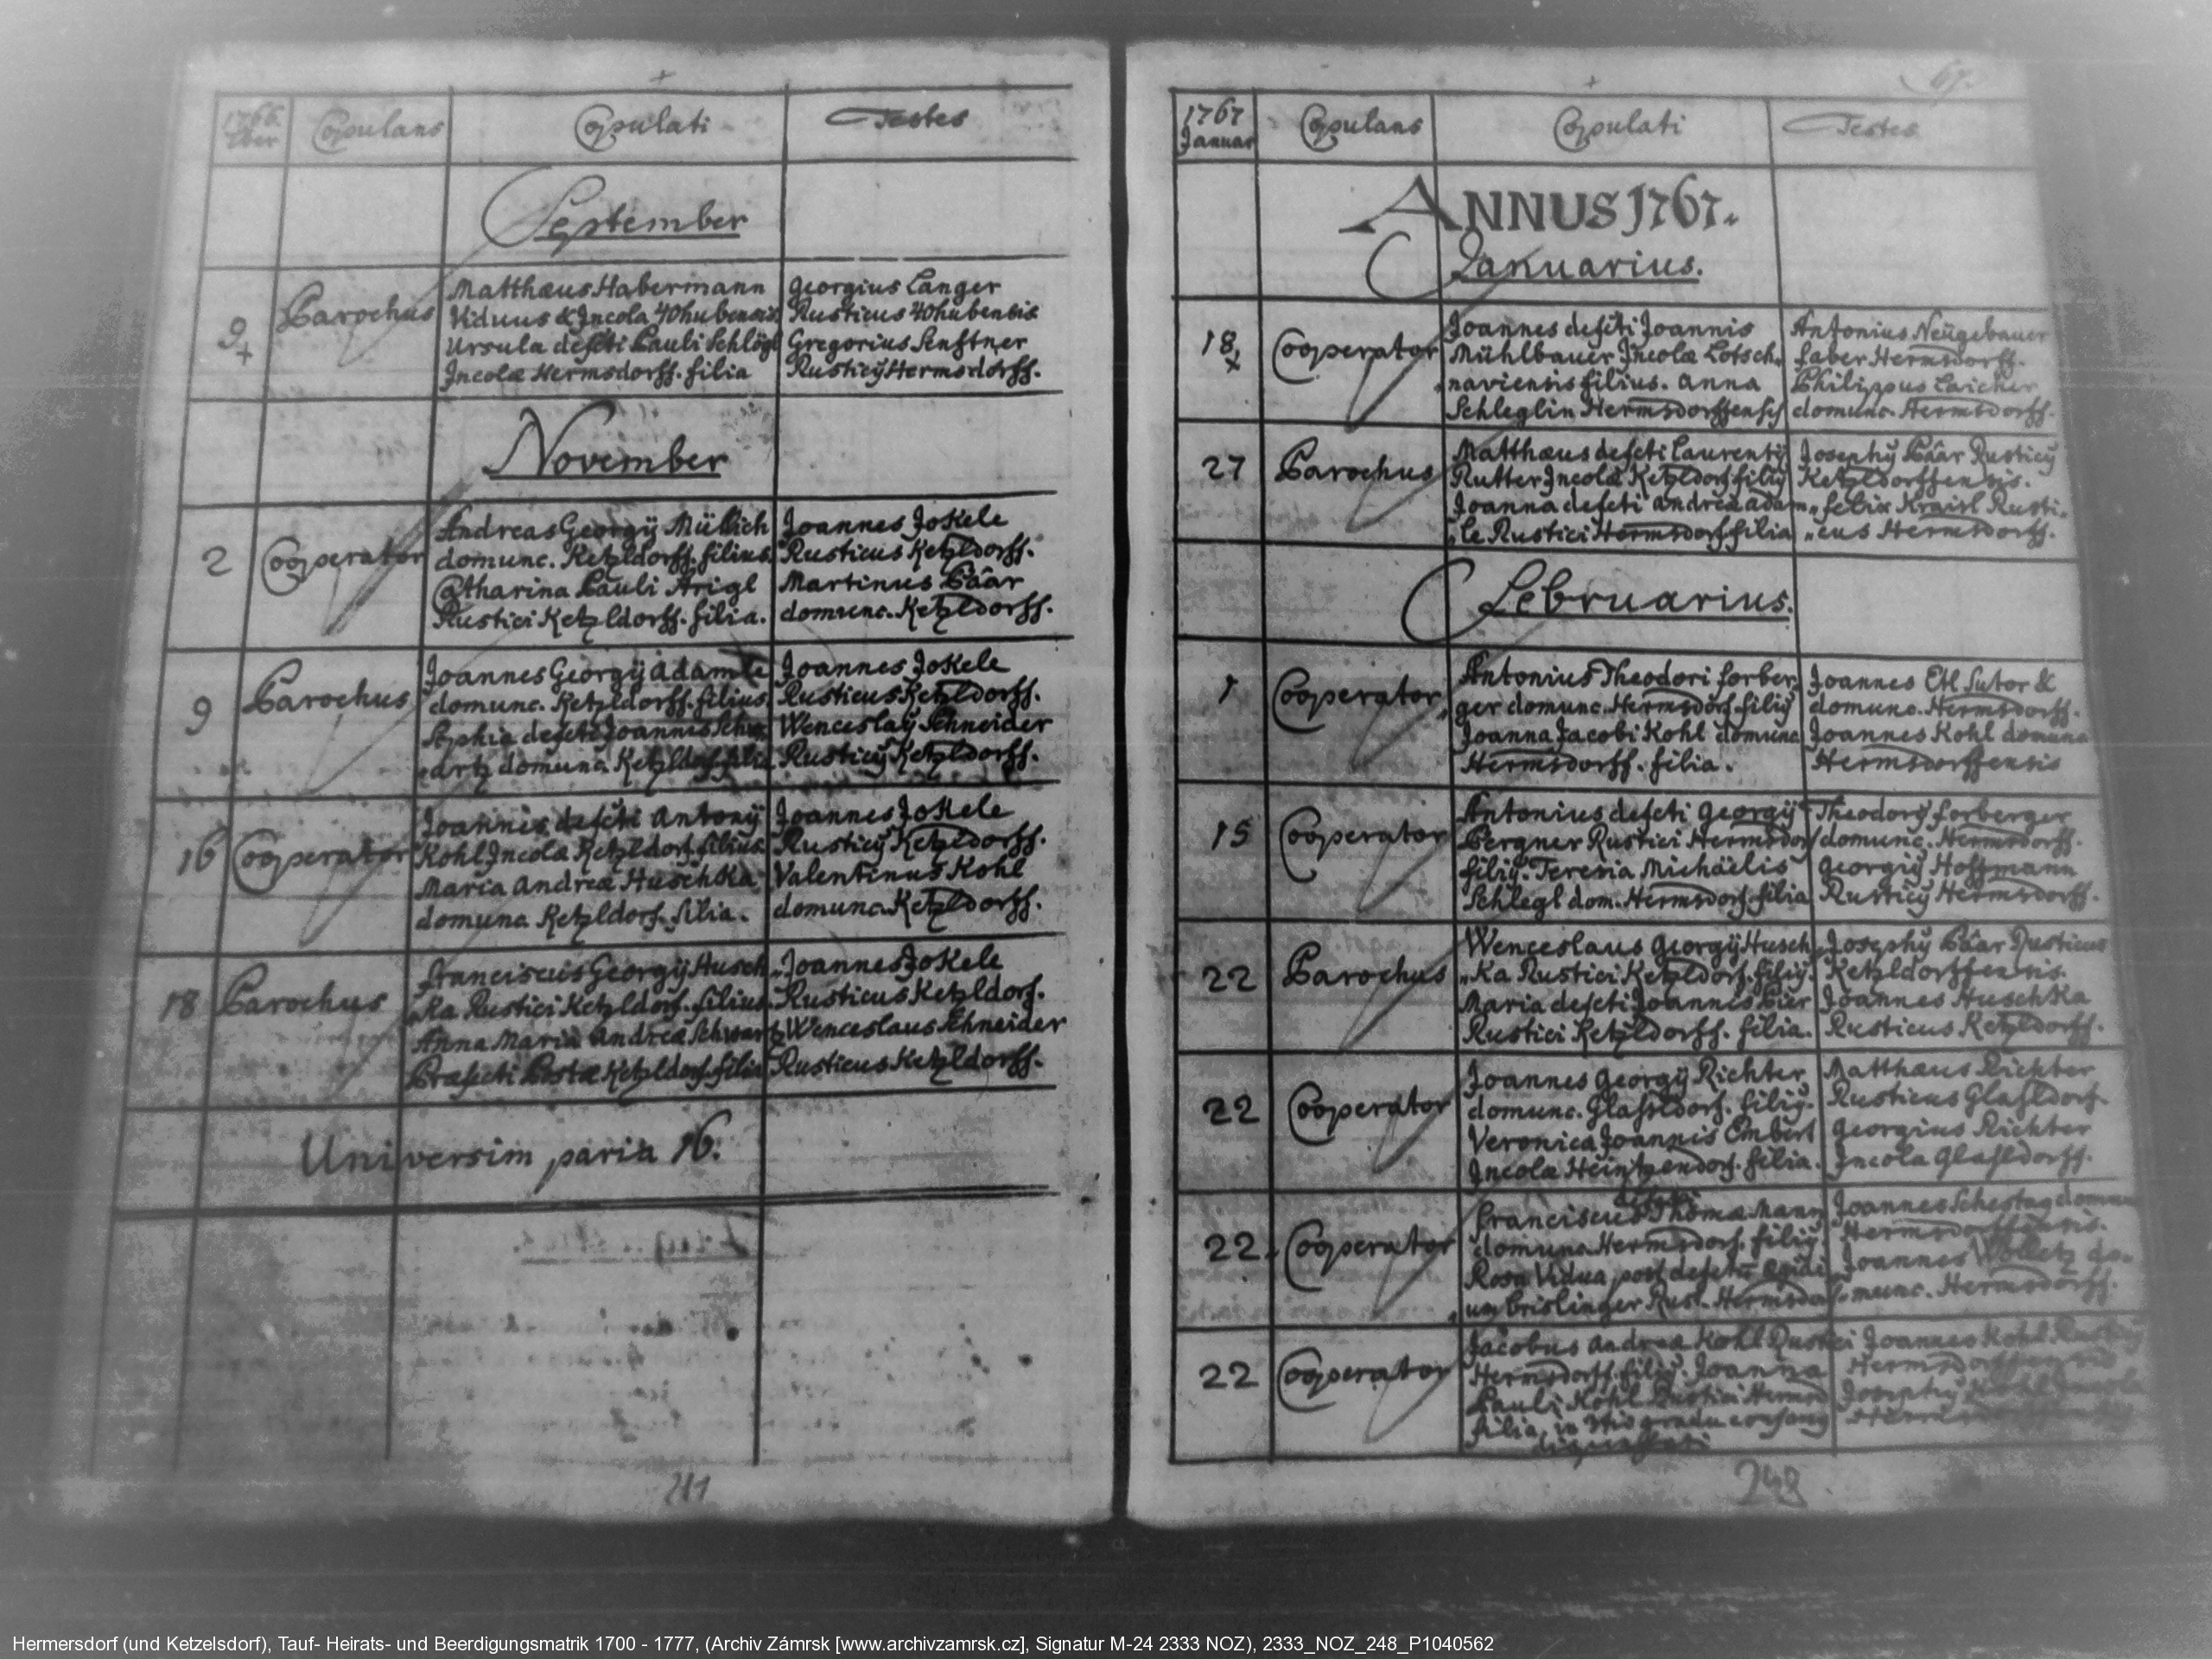 1766.
Copulans
Copulati
Testes
September
9
Parochus
Matthæus Habermann
Viduus & Incola 40hubensis
Ursula defcti Pauli Schlögl
Incolæ Hermsdorff. filia
Georgius Langer
Rusticus 40hubensis
Gregorius Senftner
Rusticỹ Hermsdorff.
November
2
Cooperator
Andreas Georgÿ Müllich
domunc. Ketzldorff. filius
Catharina Pauli Arigl
Rustici Ketzldorff. filia.
Joannes Jokele
Rusticus Ketzldorff.
Martinus Päar
domunc. Ketzldorff.
9
Parochus
Joannes Georgÿ Adamle
domunc. Ketzldorff. filius
Sophia defcti Joannis
domunc. Ketzldorf filia
Joannes Jokele
Rusticus Ketzldorff.
Wenceslaÿ Schneider
Rusticÿ Ketzldorff.
16
Cooperator
Joannes defcti Antonÿ
Kohl Incolæ Ketzldorf. filius
Maria Andreæ Huschka
domunc Ketzldorf. filia.
Joannes Jokele
Rusticÿ Ketzldorff.
Valentinus Kohl
domunc. Ketzldorff.
18
Parochus
Franciscus Georgÿ Husch„
„ka Rustici Ketzldorf. filius
Anna Maria Andreæ Schwartz
Præfecti Postæ Ketzldorf. filia
Joannes Jokele
Rusticus Ketzldorf.
Wenceslaus Schneider
Rusticus Ketzldorff.
Universim paria 16.
211
67.
1767
Januar
Copulans
Copulati
Testes
ANNUS 1767.
Januarius.
18
Cooperator
Joannes defcti Joannis
Mühlbauer Incolæ Lotsch„
„naviensis filius. Anna
Schleglin Hermsdorffensis
Antonius Neügebauer
faber Hermsdorff.
Philippus Laicher
domunc. Hermsdorff.
27
Parochus
Matthæus defcti Laurentÿ
Rutter Incolæ Ketzldorf filiÿ
Joanna defcti Andreæ Adam„
„le Rustici Hermsdorf. filia
Josephÿ Päar Rusticÿ
Ketzldorffensis.
felix Kraisl Rusti„
„cus Hermsdorff.
Februarius.
1
Cooperator
Antonius Theodori forber„
„ger domunc. Hermsdorf. filiÿ
Joanna Jacobi Kohl domunc
Hermsdorff. filia.
Joannes Etl Sutor &
domunc. Hermsdorff.
Joannes Kohl domunc
Hermsdorffensis
15
Cooperator
Antonius defcti Georgÿ
Bergner Rustici Hermsdorf
filiÿ. Teresia Michäelis
Schlegl dom. Hermsdorf. filia
Theodorÿ forberger
domunc. Hermsdorff.
Georgiÿ Hoffmann
Rusticÿ Hermsdorff.
22
Parochus
Wenceslaus Georgÿ Husch„
„ka Rustici Ketzldorf. filiÿ.
Maria defcti Joannis Pier
Rustici Ketzldorff. filia.
Josephÿ Päar Rusticus
Ketzldorffensis.
Joannes Huschka
Rusticus Ketzldorff.
22
Cooperator
Joannes Georgÿ Richter
domunc. Glasseldorf. filiÿ.
Veronica Joannis Embert
Incolæ Heintzendorf. filia.
Matthæus Richter
Rusticus Glasseldorf.
Georgius Richter
Incola Glasseldorff.
22
Cooperator
defcti
Franciscus Thomæ Mann
domunc Hermsdorf. filiÿ.
Rosa Vidua post defctū Egidi„
„um brislinger Rust. Hermsdorf
Joannes Schestag domunc
Hermsdorffensis.
Joannes Wolletz do„
„munc. Hermsdorff.
22
Cooperator
Jacobus Andreæ Kohl Rustici
Hermsdorff. filiÿ. Joanna
Pauli Kohl Rustici Hermsd
filia, in gradu consang
Joannes Kohl
Josephÿ
248
Hermersdorf (und Ketzelsdorf), Tauf- Heirats- und Beerdigungsmatrik 1700 - 1777, (Archiv Zámrsk [www.archivzamrsk.cz], Signatur M-24 2333 NOZ), 2333_NOZ_248_P1040562